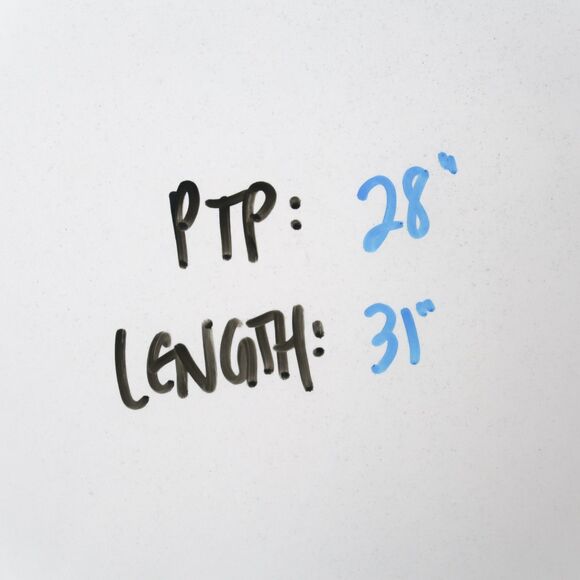 PTP: 28"
LENGTH: 31"